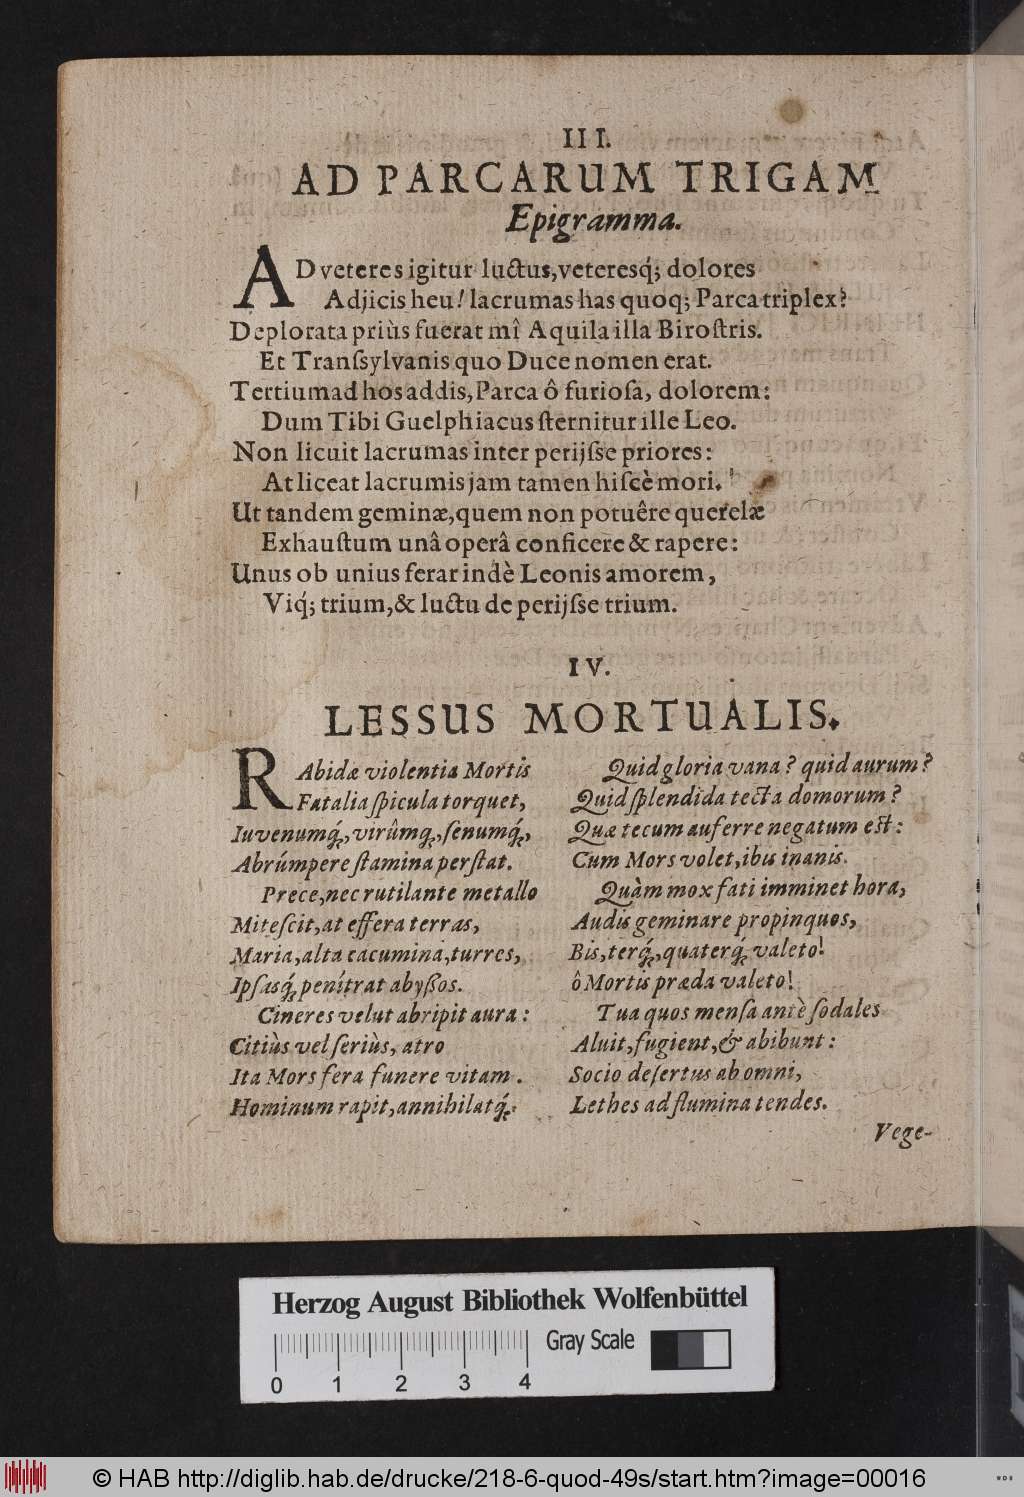 III.
AD PARCARUM TRIGAM
Epigramma.
AD veteres igitur luctus, veteresq́; dolores
Adjicis heu! lacrumas has quoq; Parca triplex?
Deplorata priùs fuerat mî Aquila illa Biroſtris.
Et Tranſsylvanis quo Duce nomen erat.
Tertium ad hos addis, Parca ô furioſa, dolorem:
Dum Tibi Guelphiacus ſternitur ille Leo.
Non licuit lacrumas inter perijſse priores:
At liceat lacrumis jam tamen hiſcè mori.
Ut tandem geminæ, quem non potuêre querelæ
Exhauſtum unâ operâ conficere & rapere:
Unus ob unius ferar indè Leonis amorem,
Viq́; trium, & luctu de perijſse trium.
IV.
LESSUS MORTUALIS.
RAbidæ violentia Mortis
Fatalia ſpicula torquet,
Iuvenumq́;, virûmq;, ſenumq́;,
Abrúmpere ſtamina perſtat.
Prece, nec rutilante metallo
Miteſcit, at effera terras,
Maria, alta cacumina, turres,
Ipſasq́; penítrat abyßos.
Cineres velut abripit aura:
Citiùs vel ſeriùs, atro
Ita Mors fera funere vitam.
Hominum rapit, annihilatq́;.
Quid gloria vana? quid aurum?
Quid ſplendida tecta domorum?
Quæ tecum auferre negatum eſt:
Cum Mors volet, ibis inanis.
Quàm mox fati imminet hora,
Audis geminare propinquos,
Bis, terq́;, quaterq́; valeto!
ô Mortis præda valeto!
Tua quos menſa antè ſodales
Aluit, fugient, & abibunt:
Socio deſertus ab omni,
Lethes ad flumina tendes.
Vege-
Herzog August Bibliothek Wolfenbüttel
Gray Scale
0 1 2 3 4
© HAB http://diglib.hab.de/drucke/218-6-quod-49s/start.htm?image=00016